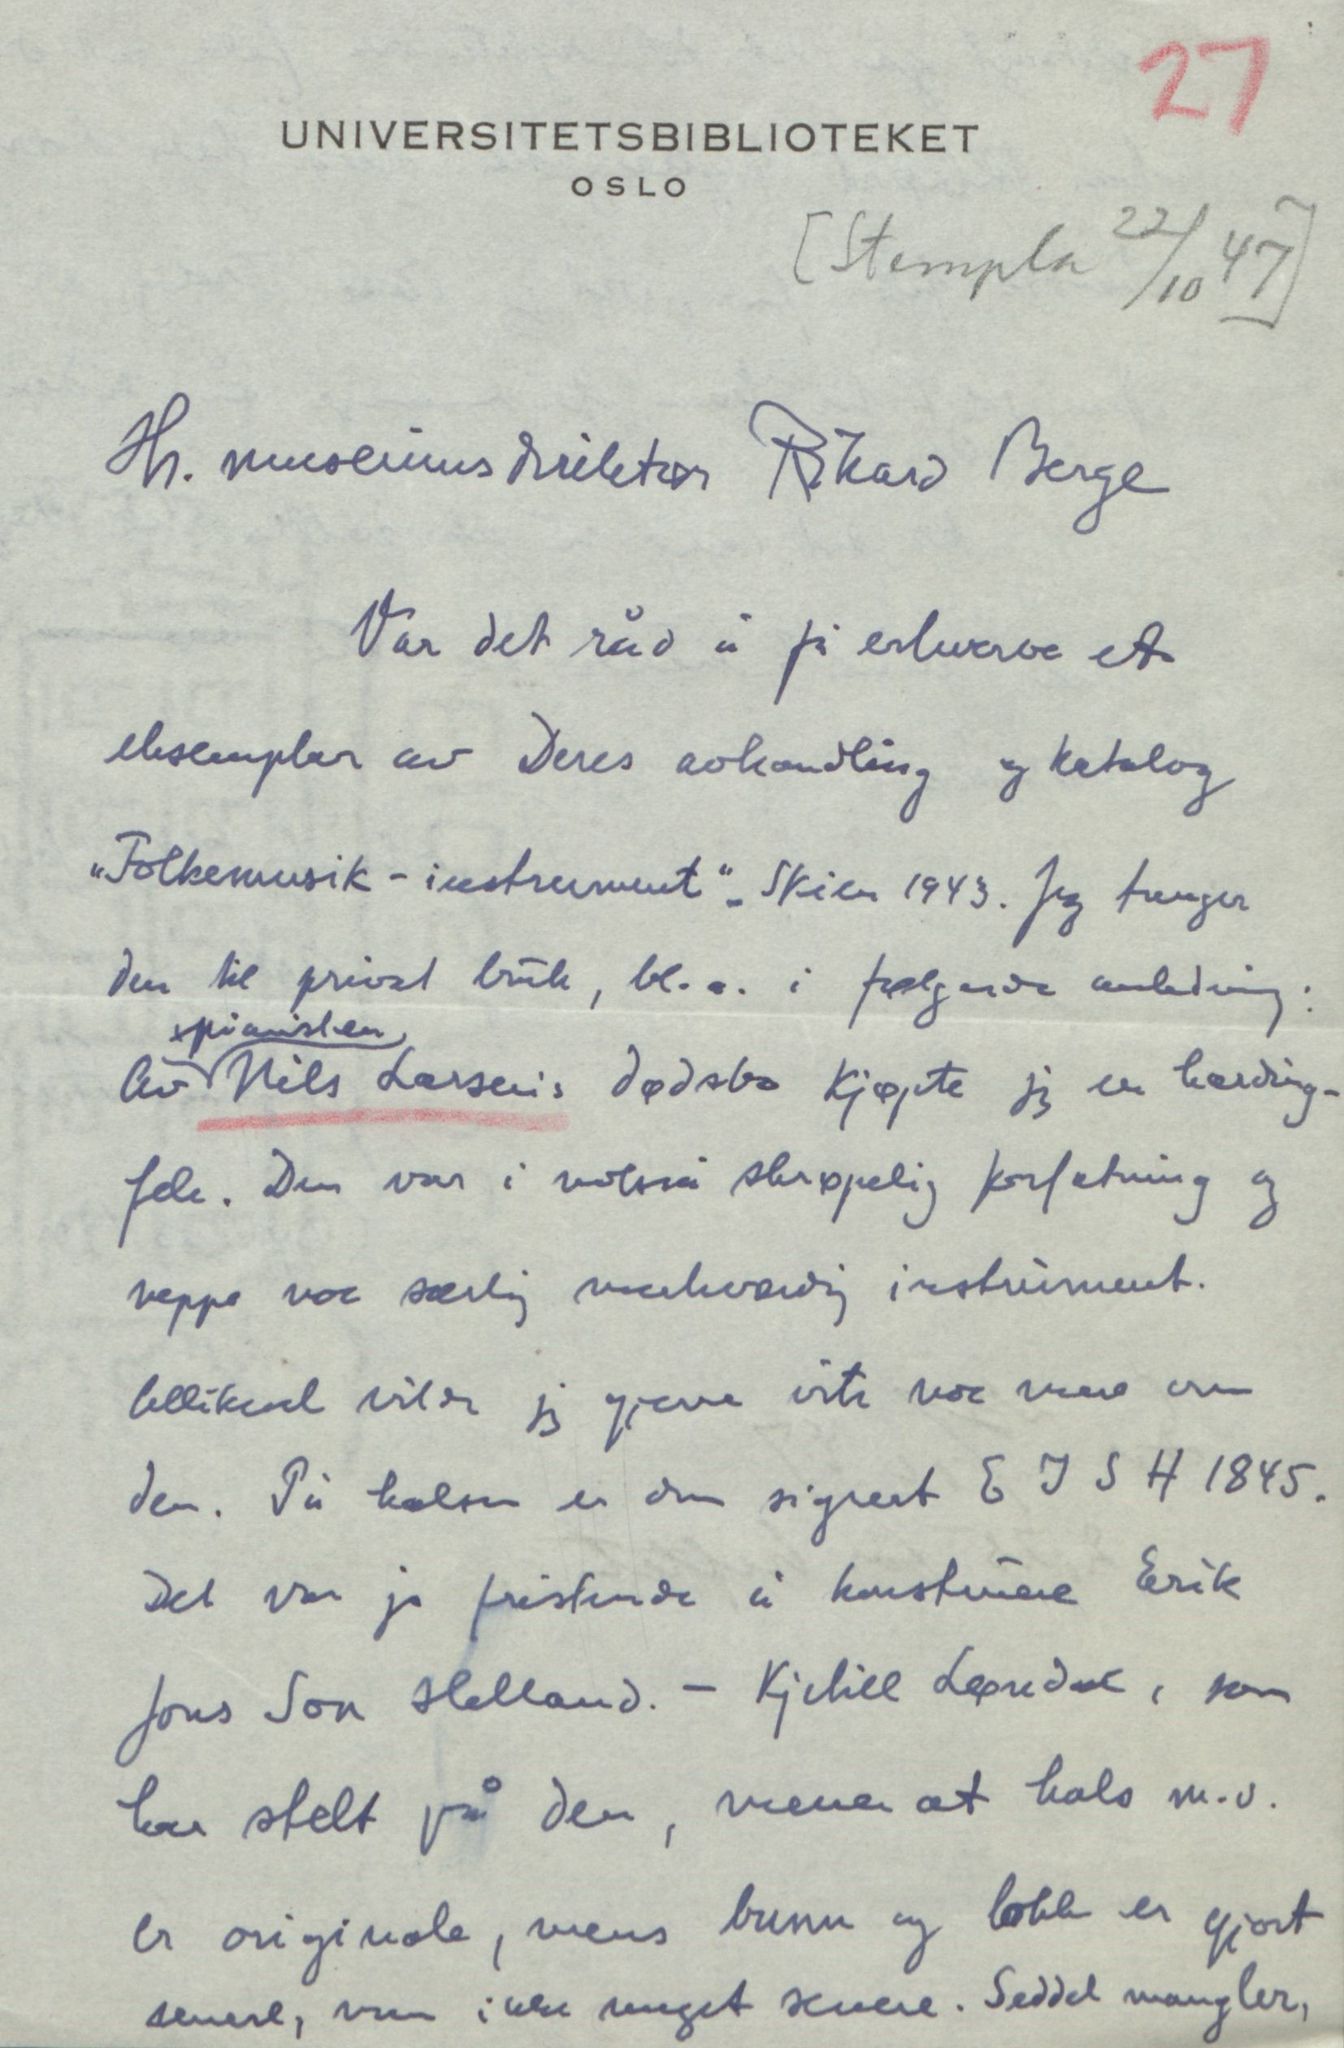 27
UNIVERSITETSBIBLIOTEKET
OSLO
[Stempla 22/10 47]
Hr. museumsdirektør Rikard Berge
Var det råd å få erhverve et
eksemplar av Deres avhandling og katalog
"Folkemusik-instrument". Skien 1943. Jeg trenger
den til privat bruk, bl.a. i følgende anledning:
pianisten
Av Nils Larsens dødsbo kjøpte jeg en harding-
fele. Den var i nokså skrøpelig forfatning og
neppe noe særlig merkverdig instrument.
Allikevel vilde jeg gjerne vite noe mere om
den. På halsen er den signert E J S H 1845.
Det var jo fristende å konstruere Erik
Jons Son Helland. - Kjetill Løndal, som
har stelt på den, mener at hals m.v.
er originale, mens bunn og lokk er gjort
senere, men ikke meget senere. Seddel mangler,